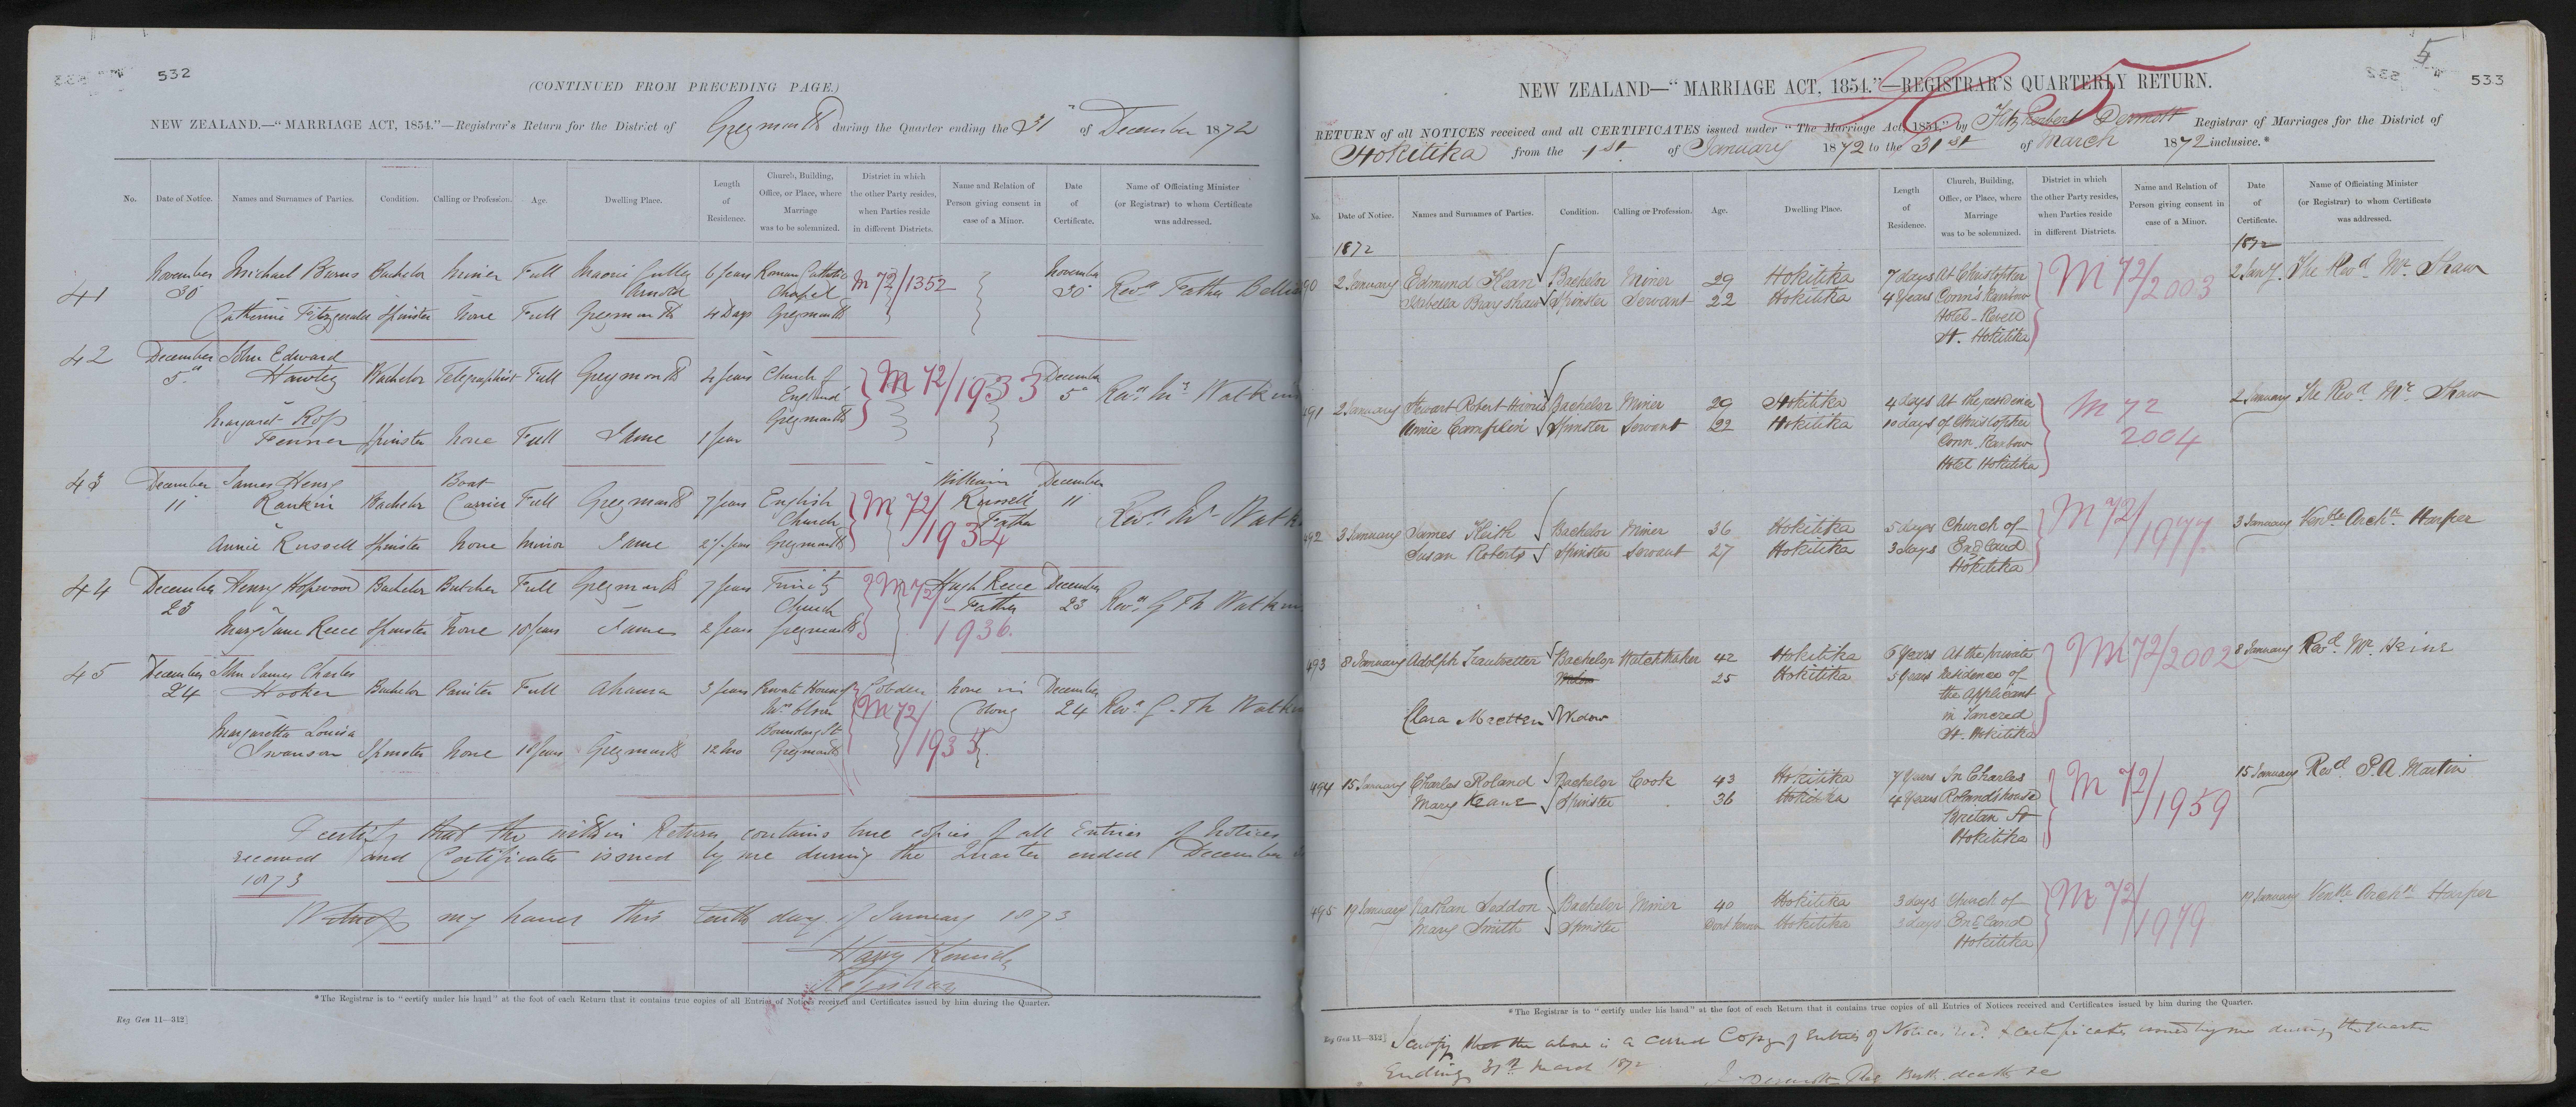 532
(CONTINUED FROM PRECEDING PAGE.)
NEW ZEALAND.—"MARRIAGE ACT, 1854."—Registrar's Return for the District of Greymouth during the Quarter ending the 31 of December 1872
No. Date of Notice. Names and Surnames of Parties. Condition. Calling or Profession. Age. Dwelling Place. Length of Residence. Church, Building, Office, or Place, where Marriage was to be solemnized. District in which the other Party resides, when Parties reside in different Districts. Name and Relation of Person giving consent in case of a Minor. Date of Certificate. Name of Officiating Minister (or Registrar) to whom Certificate was addressed.
41 November 30 Michael Burns Bachelor Miner Full Maori Gully Arnold 6 years Roman Catholic Chapel Greymouth M 72/1352 November 30 Revd Father
Catherine Fitzgerald Spinster None Full Greymouth 4 Days
42 December 5th John Edward Hawley Bachelor Telegraphist Full Greymouth 4 years Church of England Greymouth M 72/1933 December 5th Revd Mr Watkin
Margaret Ross Fenner Spinster None Full Same 1 year
43 December 11 James Henry Rankin Bachelor Boat Carrier Full Greymouth 7 years English Church Greymouth M 72/1934 William Russell Father December 11 Revd Mr Watk
Annie Russell Spinster None Minor Same 2½ years
44 December 23 Henry Hopwood Bachelor Butcher Full Greymouth 7 years Trinity Church Greymouth M 72/1936. Hugh Reece Father December 23 Revd G Th Watkin
Mary Jane Reece Spinster None 18 years Same 2 years
45 December 24 John James Charles Hooker Bachelor Painter Full Ahaura 3 years Private House of Boundary St Greymouth Cobden M 72/ None in Colony December 24 Revd G. Th Watkin
Margaretta Louisa Swanson Spinster None Greymouth 12 Mo
I certify that the within Return contains true copies of all Entries of Notices
received and Certificates issued by me during the Quarter ended December
1873
Witness my hand this tenth day of January 1873
Harry Kenrick
Registrar
*The Registrar is to "certify under his hand" at the foot of each Return that it contains true copies of all Entries of Notices received and Certificates issued by him during the Quarter.
Reg Gen 11—312]
5
533
NEW ZEALAND—"MARRIAGE ACT, 1854."—REGISTRAR'S QUARTERLY RETURN.
RETURN of all NOTICES received and all CERTIFICATES issued under "The Marriage Act, 1854," by Fitzherbert Dermott Registrar of Marriages for the District of
Hokitika from the 1st of January 1872 to the 31st of March 1872 inclusive.*
No. Date of Notice. Names and Surnames of Parties. Condition. Calling or Profession. Age. Dwelling Place. Length of Residence. Church, Building, Office, or Place, where Marriage was to be solemnized. District in which the other Party resides, when Parties reside in different Districts. Name and Relation of Person giving consent in case of a Minor. Date of Certificate. Name of Officiating Minister (or Registrar) to whom Certificate was addressed.
1872 1872
90 2 January Edmund Kean Bachelor Miner 29 Hokitika 7 days At Christopher Conn's Rainbow Hotel - Revell St. Hokitika M 72/2003 2 Jany. The Revd Mr Shaw
Isabella Bayshaw Spinster Servant 22 Hokitika 4 Years
491 2 January Stewart Robert Haines Bachelor Miner 29 Hokitika 4 days At the residence of Christopher Conn Rainbow Hotel Hokitika M 72 2004 2 January The Revd Mr Shaw
Annie Campken Spinster Servant 22 Hokitika 10 days
492 3 January James Keith Bachelor Miner 36 Hokitika 5 days Church of England Hokitika M 72/1977 3 January Venble Archn Harper
Susan Roberts Spinster Servant 27 Hokitika 3 days
493 8 January Adolph Trautvetter Bachelor Watchmaker 42 Hokitika 6 Years At the private residence of the Applicant in Tancred St. Hokitika M 72/2002 8 January Revd Mr Heine
Widow 25 Hokitika 3 Years
Clara Maetzen Widow
494 15 January Charles Roland Bachelor Cook 43 Hokitika 7 Years In Charles Roland's house Brittan St Hokitika M 72/1959 15 January Revd P.A. Martin
Mary Keane Spinster 36 Hokitika 4 Years
495 19 January Nathan Seddon Bachelor Miner 40 Hokitika 3 days Church of England Hokitika M 72/1979 19 January Venble Archn Harper
Mary Smith Spinster Dont know Hokitika 3 days
*The Registrar is to "certify under his hand" at the foot of each Return that it contains true copies of all Entries of Notices received and Certificates issued by him during the Quarter.
Reg Gen 11—312]
I certify that the above is a correct Copy of Entries of Notices recd. & certificates issued by me during the quarter
Ending 31st March 1872
Dermott Reg Births deaths &c